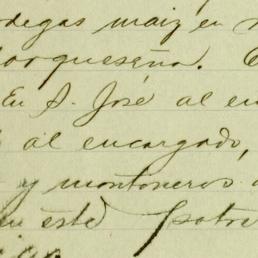 bodegas maiz en
orqueseña.
En S. José al en
al encargado,
y montoneros
en este potre